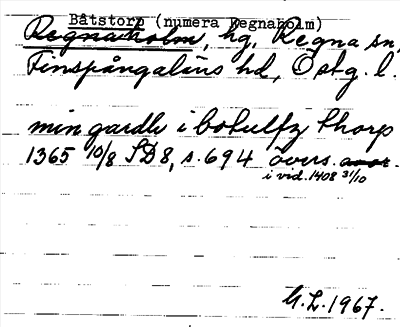 Båtstorp (numera Regnaholm)
Regnaholm, hg, Regna sn,
Finspångaläns hd, Östg. l.
min gardh i botulfz thorp
1365 10/8 SD 8, s. 694 övers. avskr.
i vid. 1408 31/10
G.L. 1967.